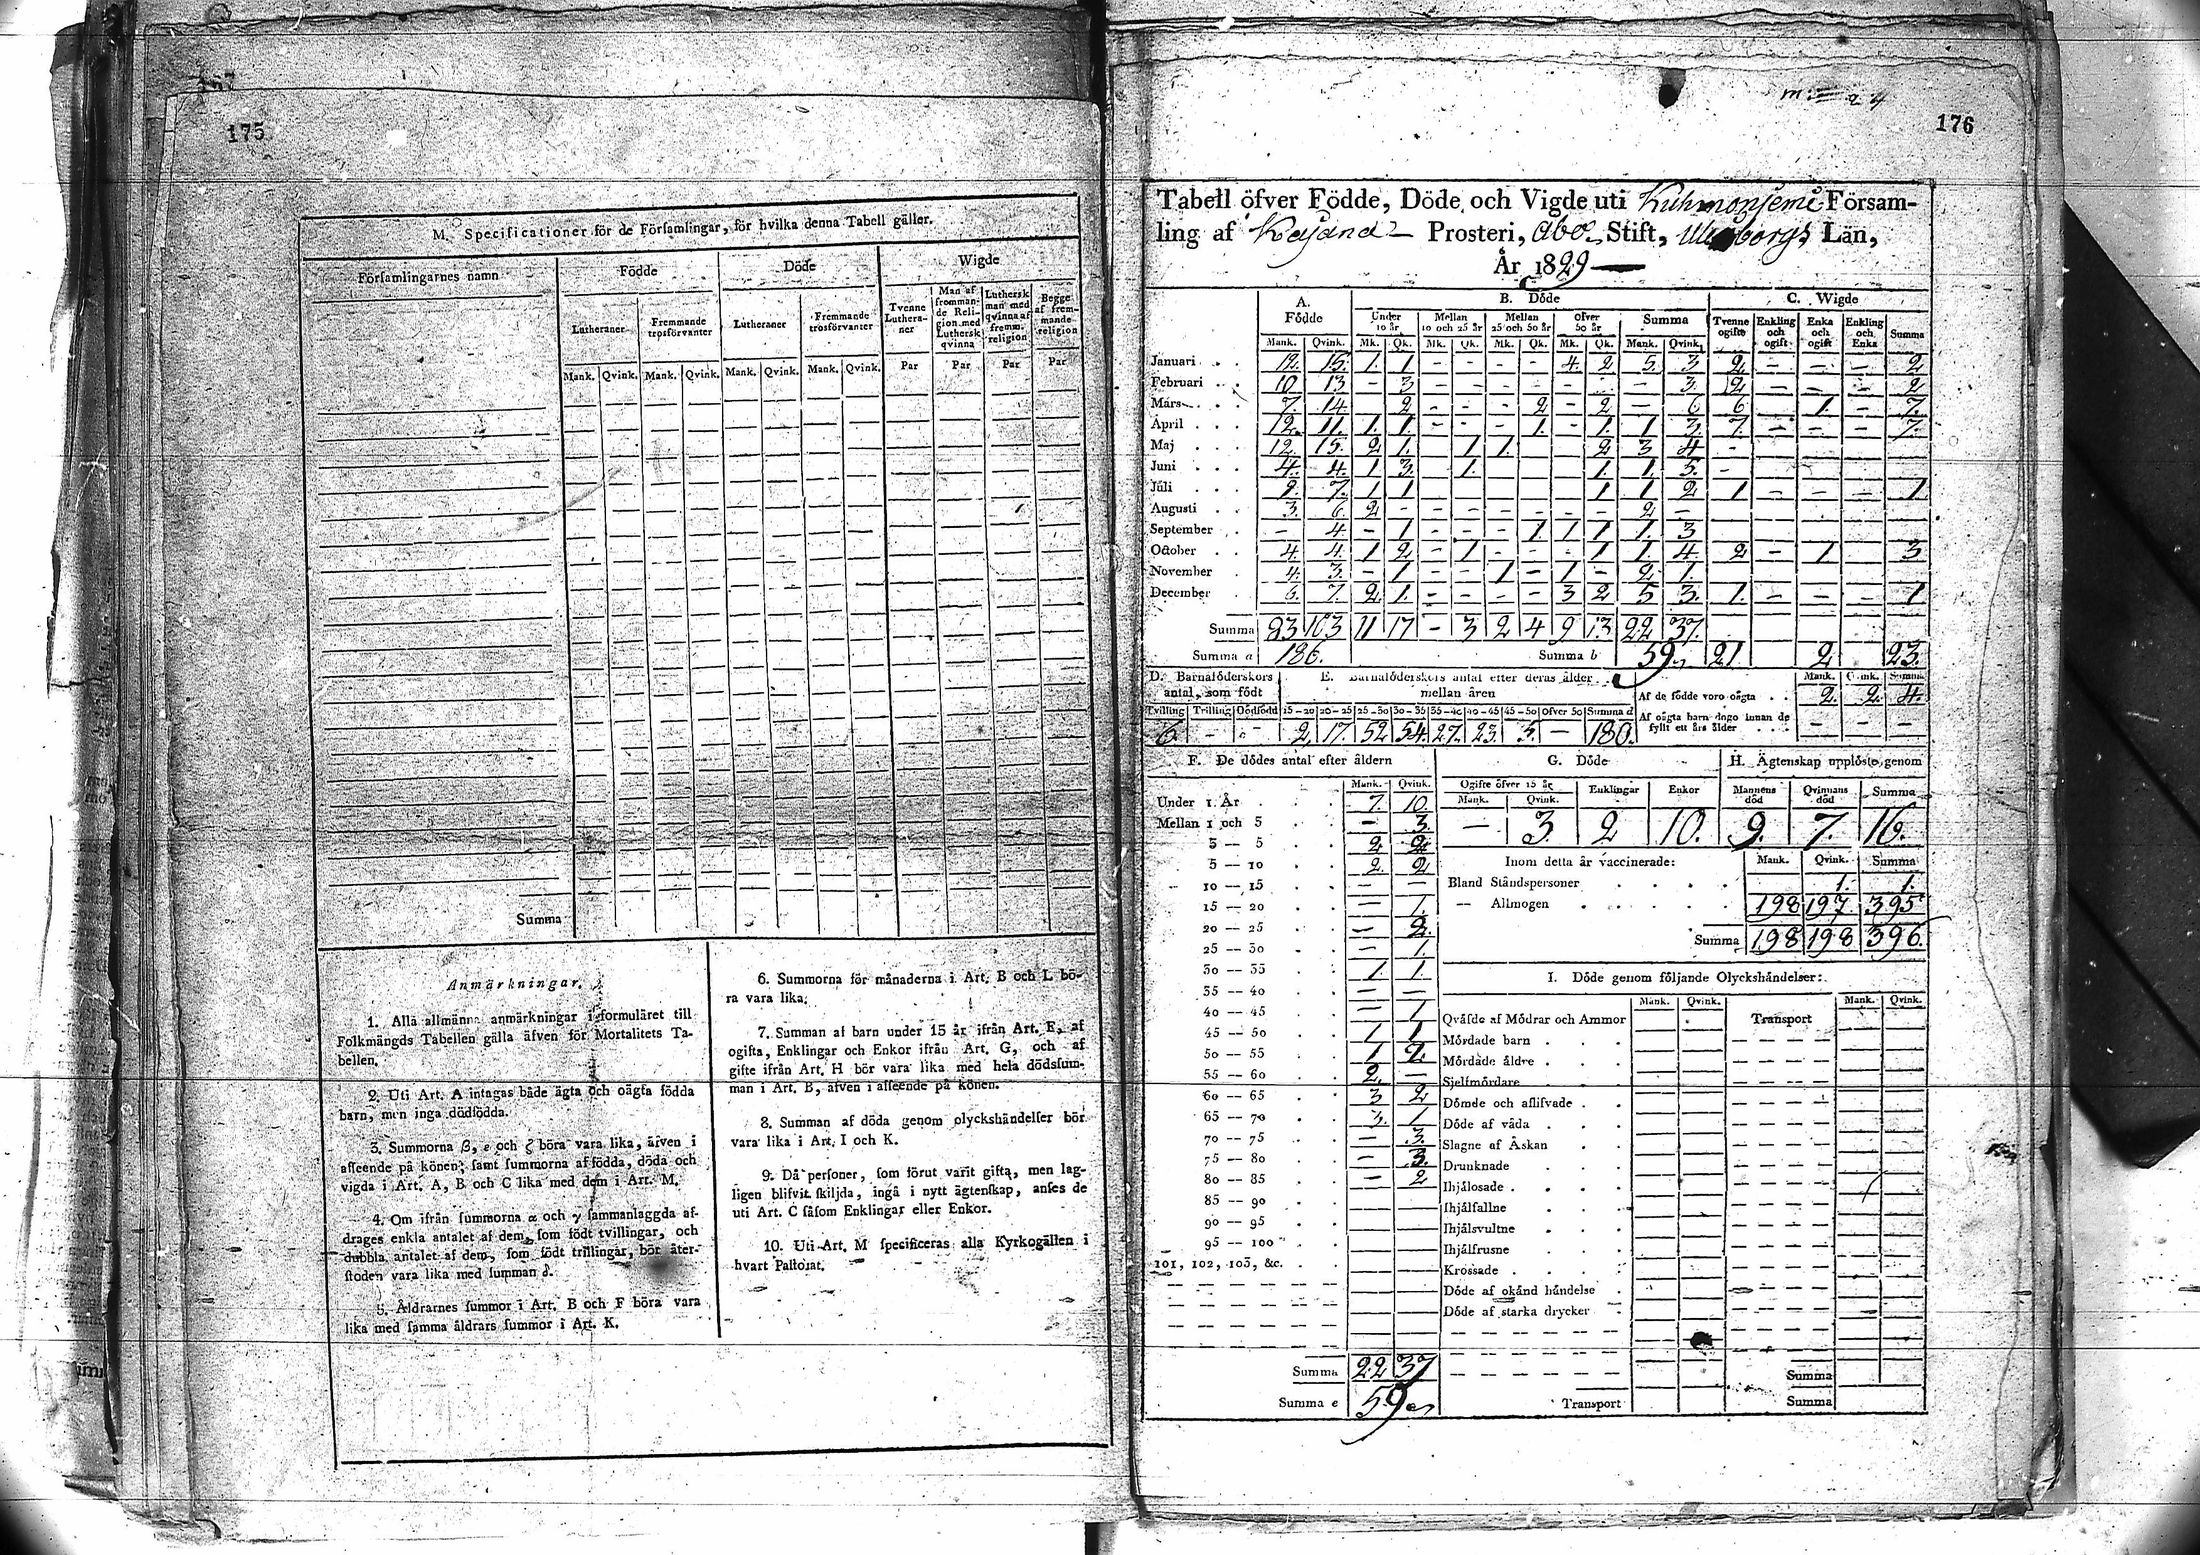 175
M. Specificationer för de Församlingar, för hvilka denna Tabell gäller.
Församlingarnes namn
Födde
Döde
Wigde
Lutheraner
Fremmande trosförvanter
Lutheraner
Fremmande trosförvanter
Tvenne Lutheraner
Man af frommande Religion med Luthersk qvinna
Luthersk man med qvinna af fremm. religion
Begge af fremmande religion
Mank. Qvink. Mank. Qvink. Mank. Qvink. Mank. Qvink. Par Par Par Par
Summa
Anmärkningar.
1. Alla allmänna anmärkningar i formuläret till
Folkmängds Tabellen gälla äfven för Mortalitets Ta-
bellen.
2. Uti Art. A intagas både ägta och oägta födda
barn, men inga dödfödda.
3. Summorna β, ε och ζ böra vara lika, äfven i
afseende på könen; samt summorna af födda, döda och
vigda i Art. A, B och C lika med dem i Art. M.
4. Om ifrån summorna α och γ sammanlaggda af-
drages enkla antalet af dem, som födt tvillingar, och
dubbla antalet af dem, som födt trillingar, bör åter-
stoden vara lika med summan δ.
5. Åldrarnes summor i Art. B och F böra vara
lika med samma åldrars summor i Art. K.
6. Summorna för månaderna i Art. B och L bö-
ra vara lika.
7. Summan af barn under 15 år ifrån Art. F, af
ogifta, Enklingar och Enkor ifrån Art. G, och af
gifte ifrån Art. H bör vara lika med hela dödssum-
man i Art. B, äfven i afseende på könen.
8. Summan af döda genom olyckshändelser bör
vara lika i Art. I och K.
9. Då personer, som förut varit gifta, men lag-
ligen blifvit skiljda, ingå i nytt ägtenskap, anses de
uti Art. C såsom Enklingar eller Enkor.
10. Uti Art. M specificeras alla Kyrkogällen i
hvart Pastorat.
176
Tabell öfver Födde, Döde och Vigde uti Kuhmoniemi Försam-
ling af Kajana Prosteri, Åbo Stift, Uleåborgs Län,
År 1829
A. Födde
B. Döde
C. Wigde
Under 10 år
Mellan 10 och 25 år
Mellan 25 och 50 år
Öfver 50 år
Summa
Tvenne ogifte
Enkling och ogift
Enka och ogift
Enkling och Enka
Summa
Mank. Qvink. Mk. Qk. Mk. Qk. Mk. Qk. Mk. Qk. Mank. Qvink.
Januari 12. 15. 1. 1 - - - - 4. 2 5. 3 2 - - - 2
Februari 10 13 - 3 - - - - - - - 3. 2 - - - 2
Mars 7. 14 2 - - - 2 - 2 - 6 6 1. - 7.
April 12. 11. 1. 1. - - - 1. - 1. 1 3. 7. - - - 7.
Maj 12. 15. 2 1. 1 1. 2 3 4 -
Juni 4. 4. 1 3. 1. 1. 1. 5. -
Juli 9. 7. 1 1 1 1 2 1 - - - 1
Augusti 3. 6. 2 - - - - - - - 2 -
September - 4 - 1 - - - 1 1 1 1. 3
October 4. 4. 1 2 - 1 - - - 1 1. 4. 2 - 1. 3
November 4. 3. - 1 - - 1 - 1 - 2 1.
December 6. 7. 2 1. - - - - 3 2 5 3. 1. - - - 1
Summa 83 103 11 17 - 3 2 4 9 13 22 37.
Summa a 186. Summa b 59 21 2 23.
D. Barnaföderskors antal, som födt
E. Barnaföderskors antal efter deras ålder mellan åren
Af de födde voro oägta
Mank. Qvink. Summa
2. 2. 4.
Tvilling Trilling Dödfödd 15-20 20-25 25-30 30-35 35-40 40-45 45-50 Öfver 50 Summa d
Af oägta barn dogo innan de fyllt ett års ålder - - -
6. - - 2. 17. 52 54. 27. 23. 5. - 180.
F. De dödes antal efter åldern
Mank. Qvink.
Under 1. År 7. 10.
Mellan 1 och 3 - 3.
3 — 5 2 2
5 — 10 2. 2
10 — 15 - -
15 — 20 - 1.
20 — 25 - 2.
25 — 30 - 1.
30 — 35 1. 1.
35 — 40 - -
40 — 45 - 1
45 — 50 1 1
50 — 55 1 2.
55 — 60 2. -
60 — 65 3 2
65 — 70 3. 1
70 — 75 - 3.
75 — 80 - 3.
80 — 85 - 2
85 — 90
90 — 95
95 — 100
101, 102, 103, &c.
Summa 22 37
Summa e 59
G. Döde
Ogifte öfver 15 år
Mank. Qvink.
Enklingar
Enkor
- 3. 2 10.
H. Ägtenskap upplöste genom
Mannens död
Qvinnans död
Summa
9. 7. 16.
Inom detta år vaccinerade: Mank. Qvink. Summa
Bland Ståndspersoner 1. 1.
— Allmogen 198 197 395
Summa 198 198 396.
I. Döde genom följande Olyckshändelser:
Mank. Qvink. Mank. Qvink.
Qväfde af Mödrar och Ammor
Transport
Mördade barn
Mördade äldre
Sjelfmördare
Dömde och aflifvade
Döde af våda
Slagne af Åskan
Drunknade
Ihjälosade
Ihjälfallne
Ihjälsvultne
Ihjälfrusne
Krossade
Döde af okänd händelse
Döde af starka drycker
Summa
Transport
Summa